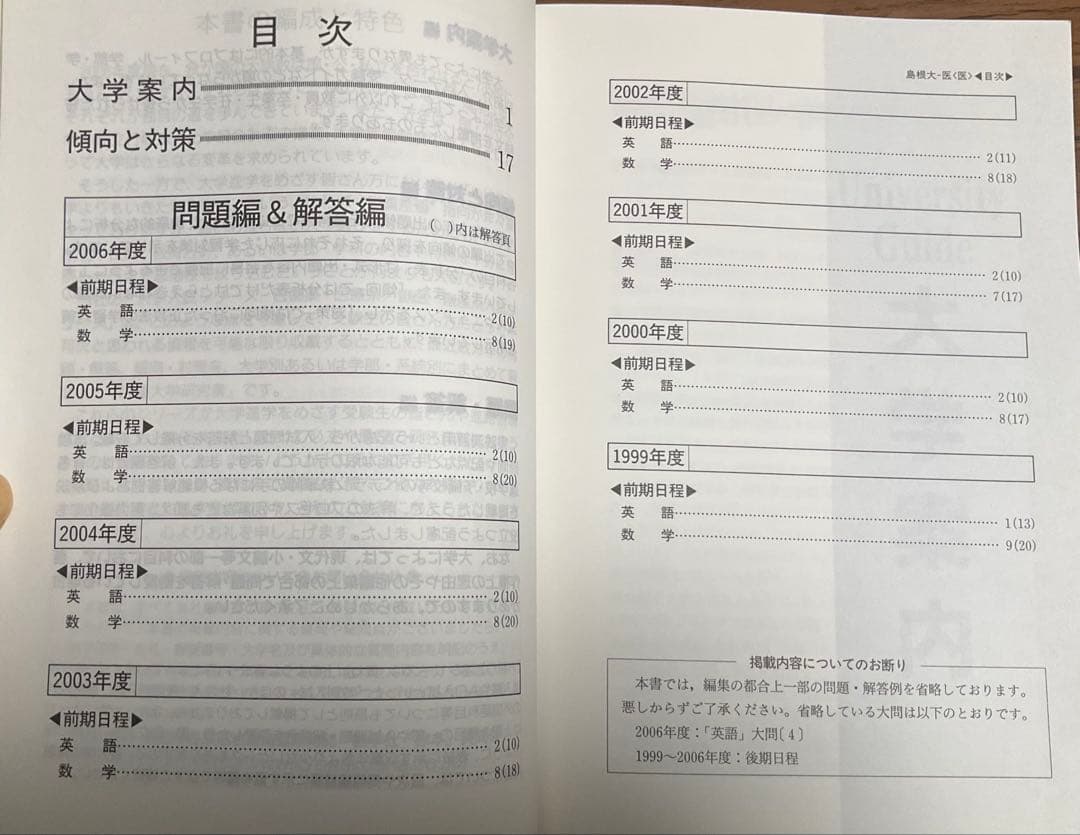 目次
大学案内 1
傾向と対策 17
問題編＆解答編 （ ）内は解答頁
2006年度
◀前期日程▶
英 語 2(10)
数 学 8(19)
2005年度
◀前期日程▶
英 語 2(10)
数 学 8(20)
2004年度
◀前期日程▶
英 語 2(10)
数 学 8(20)
2003年度
◀前期日程▶
英 語 2(10)
数 学 8(18)
島根大-医〈医〉◀目次▶
2002年度
◀前期日程▶
英 語 2(11)
数 学 8(18)
2001年度
◀前期日程▶
英 語 2(10)
数 学 7(17)
2000年度
◀前期日程▶
英 語 2(10)
数 学 8(17)
1999年度
◀前期日程▶
英 語 1(13)
数 学 9(20)
掲載内容についてのお断り
本書では，編集の都合上一部の問題・解答例を省略しております。
悪しからずご了承ください。省略している大問は以下のとおりです。
2006年度：「英語」大問〔4〕
1999～2006年度：後期日程